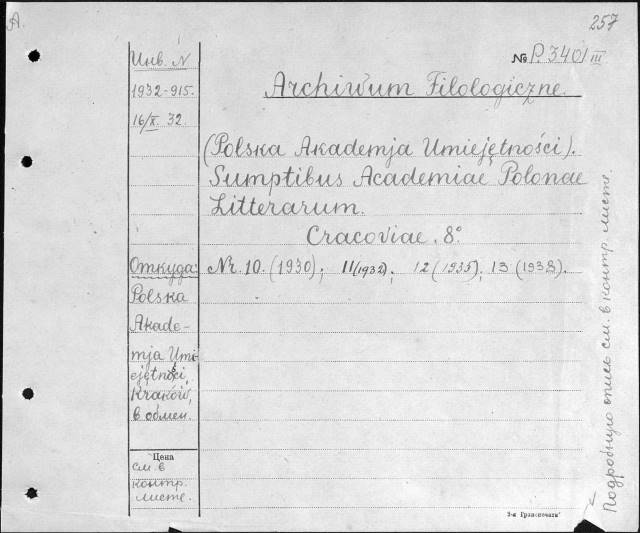 A.
257
Инв. N
1932-915.
16/X. 32.
№ P.3401 III
Archiwum Filologiczne.
(Polska Akademja Umiejętności).
Sumptibus Academiae Polonae
Litterarum.
Cracoviae. 8°
Nr. 10. (1930); 11 (1932); 12 (1935); 13 (1938).
Откуда:
Polska
Akade-
mja Umi-
ejętności,
Kraków,
в обмен.
Цена
см. в
контр.
листе.
Подробную опись см. в контр. листе.
3-я Гранпечати